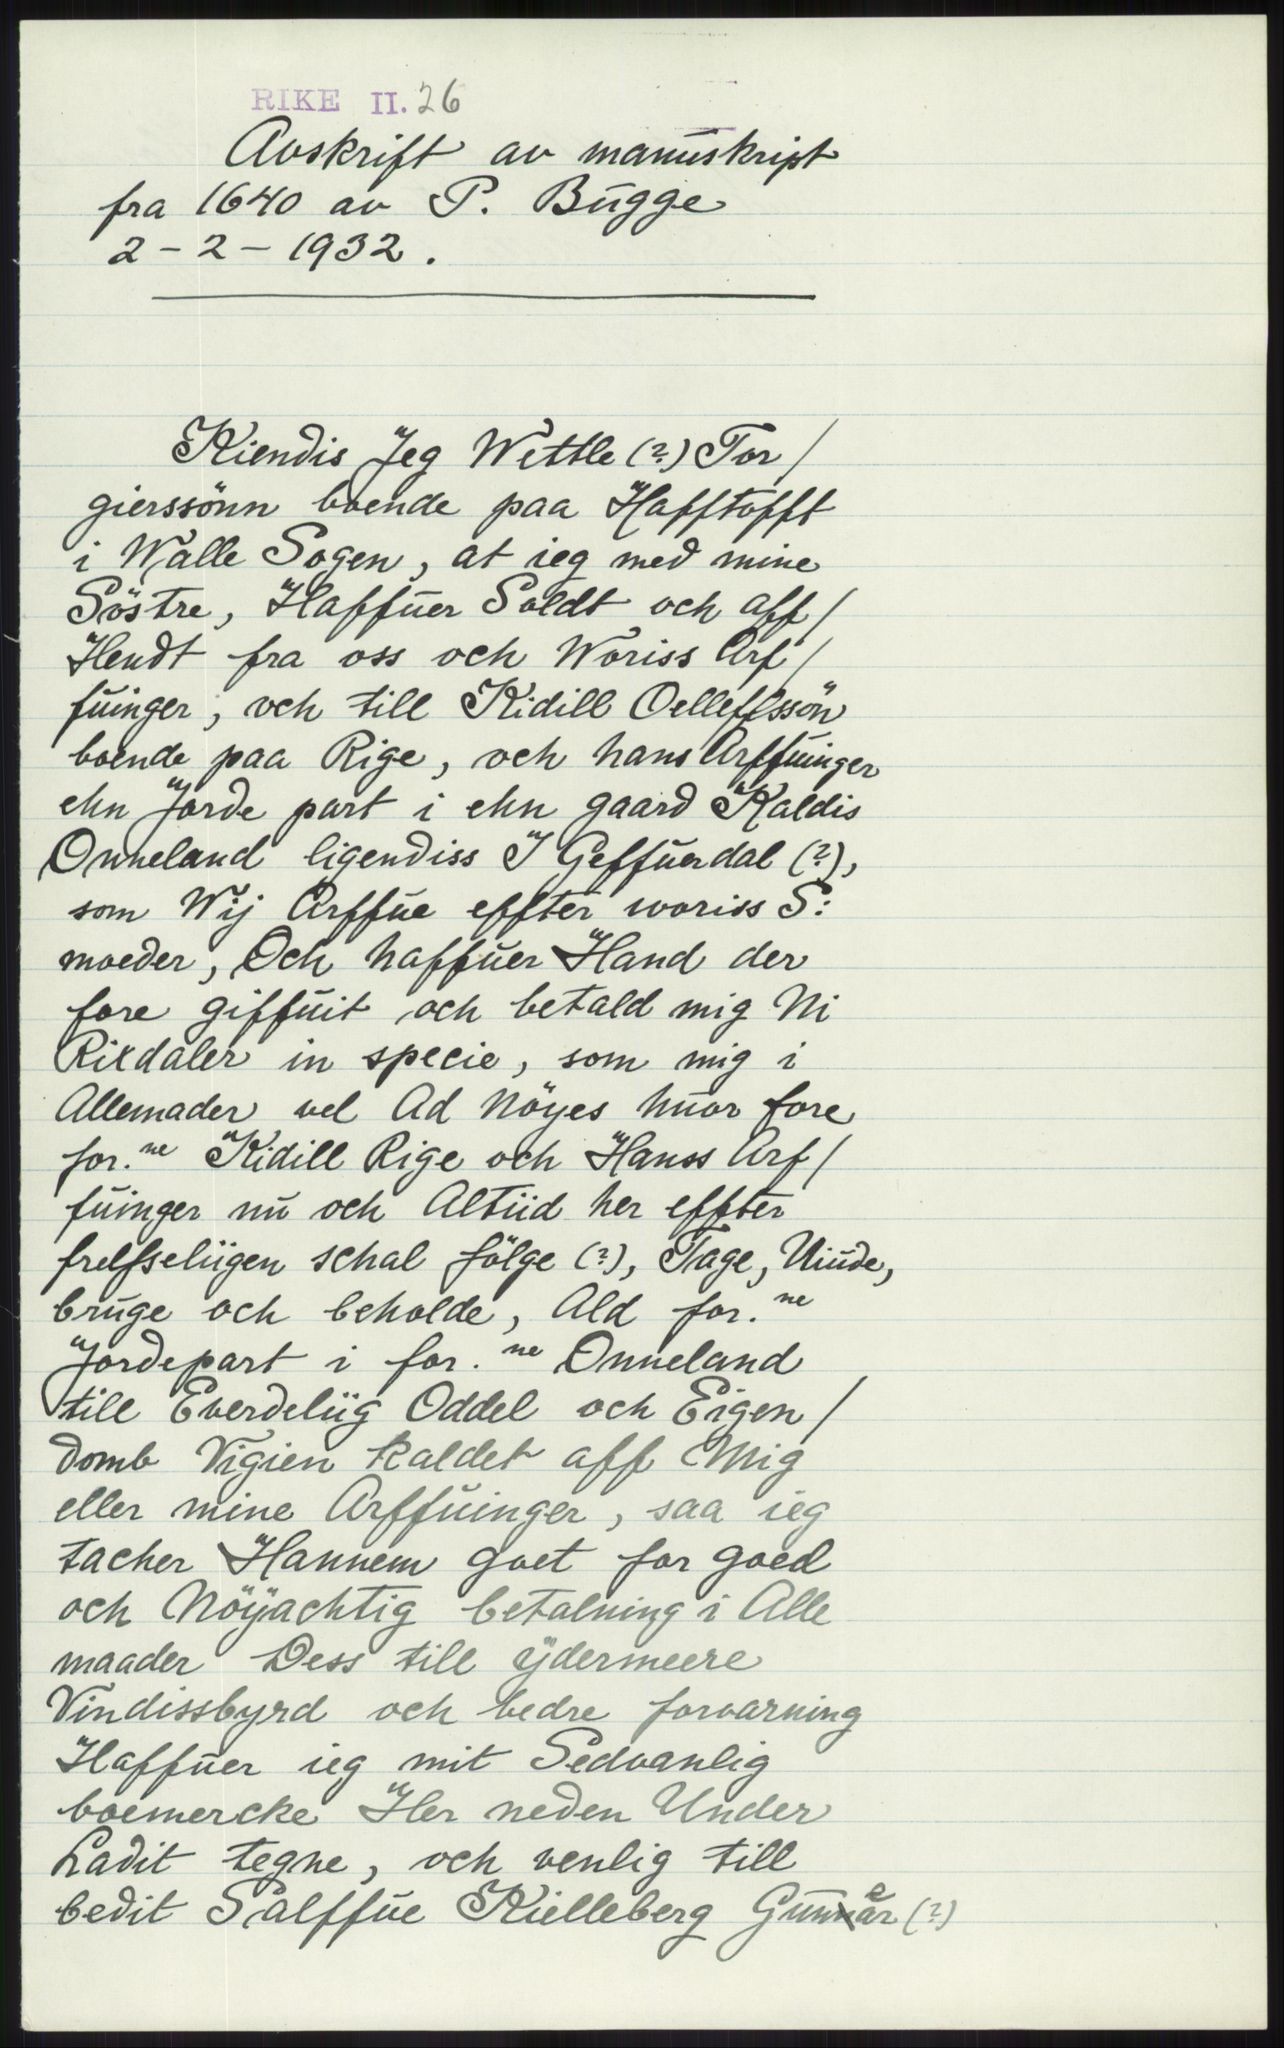 RIKE II. 26
Avskrift av manuskript
fra 1640 av P. Bugge
2 - 2 - 1932.
Kiendis Jeg Wettle (?) Tor/
gierssönn boende paa Hafftofft
i Walle Sogen, at ieg med mine
Söstre, Haffuer Soldt och aff/
Hendt fra oss och Woriss Arf/
fuinger, och till Kidill Oelleffssön
boende paa Rige, och hans Arffuinger
ehn Jorde part i ehn gaard Kaldis
Onneland ligendiss I Geffuerdal (?),
som Wij Arffue effter woriss S:
moeder, Och haffuer Hand der
fore giffuit och betald mig Ni
Rixdaler in specie, som mig i
Allemader vel Ad Nöyes huor fore
for.ne Kidill Rige och Hanss Arf/
fuinger nu och Altiid her effter
frelfseliigen schal fölge (?), Tage, Niude,
bruge och beholde, Ald for.ne
Jordepart i for.ne Onneland
till Everdeliig Oddel och Eigen/
domb Vigien kaldet aff Mig
eller mine Arffuinger, saa ieg
tacher Hannem goet for goed
och Nöyachtig betalning i Alle
maader Dess till ydermeere
Vindissbyrd och bedre forvarning
Haffuer ieg mit Sedvanlig
boemercke Her neden Under
Ladit tegne, och venlig till
bedit Salffue Kielleberg Gunnär (?)